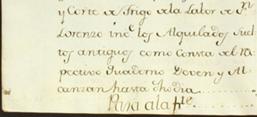 y Corte de Trigo de la Labor de Sn
Lorenzo inc los Alquilados Suel
tos antiguos como Consta del Rs
pectivo Quaderno Joven y Al
canzan hasta ho dia
Para ala fte